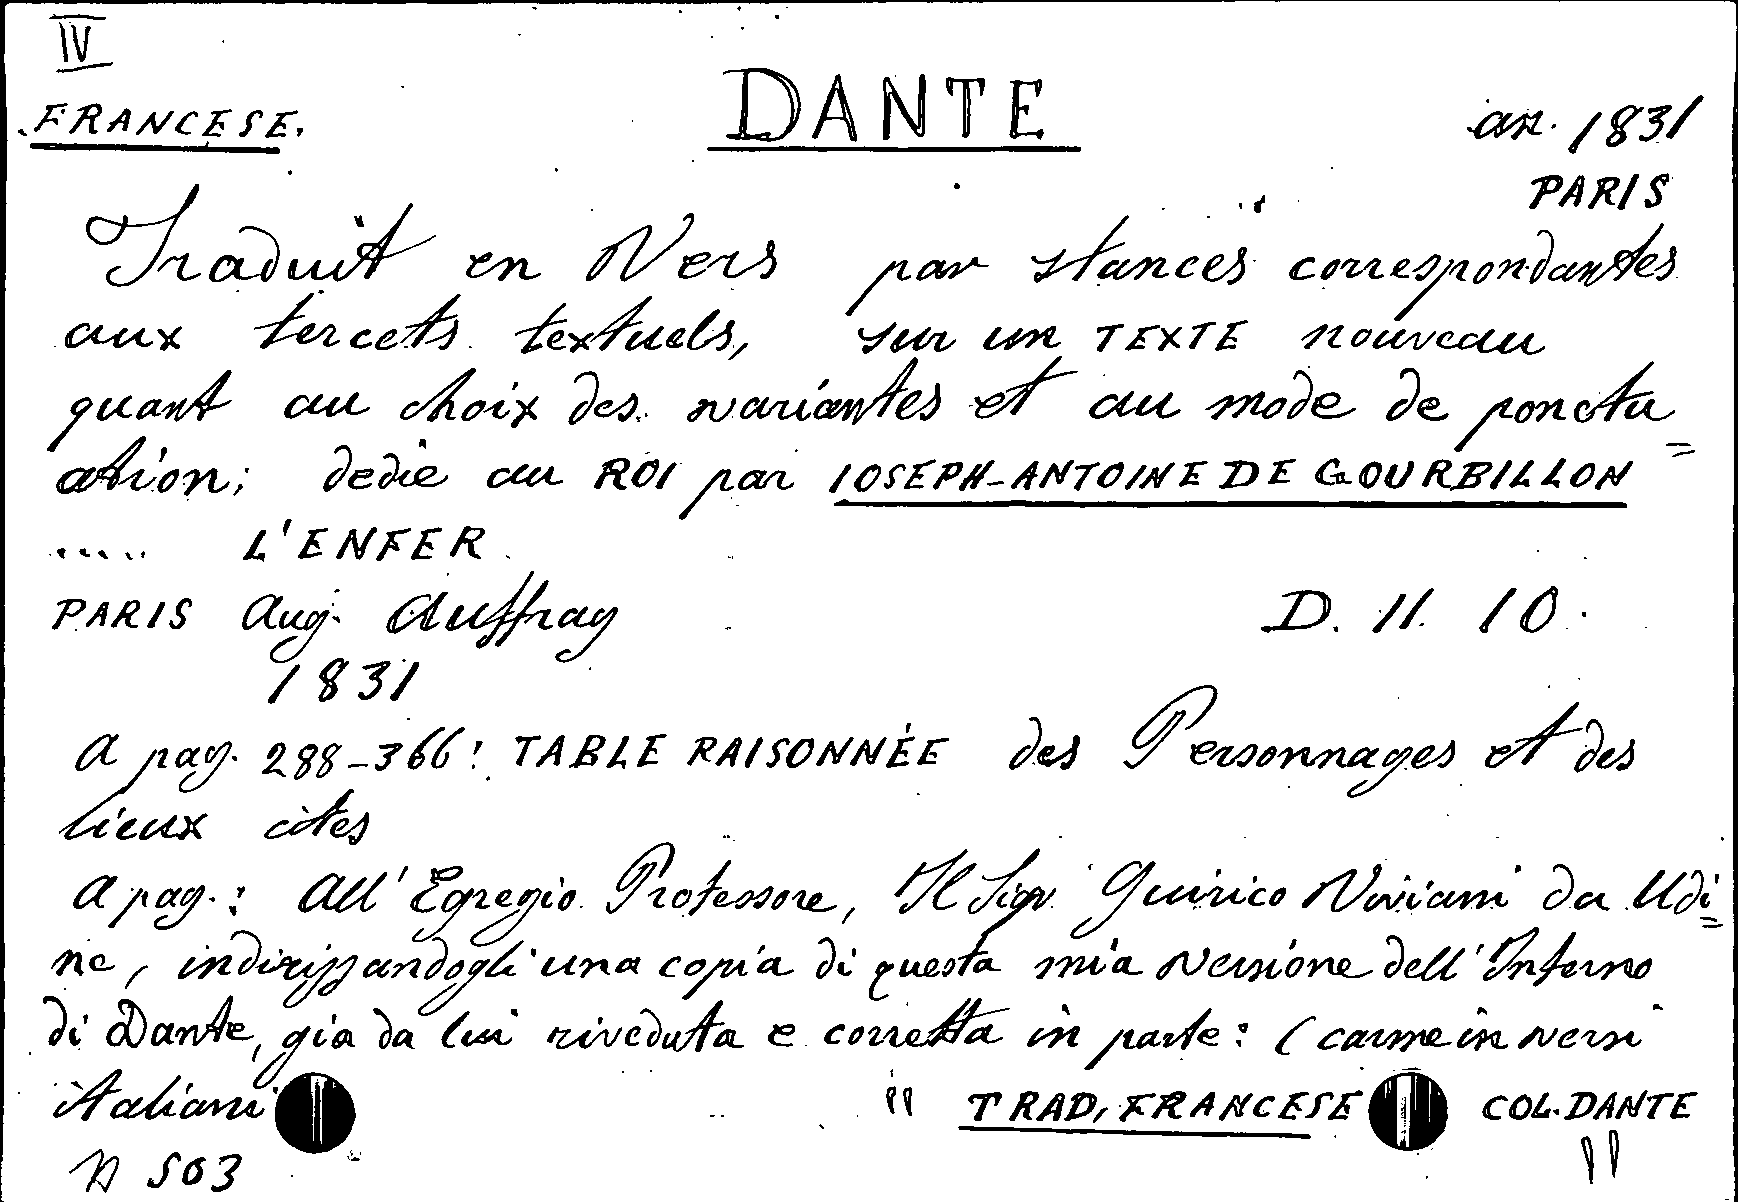 IV
FRANCESE.
DANTE
an. 1831
PARIS
Traduit en Vers par stances correspondantes
aux tercets textuels, sur un TEXTE nouveau
quant au choix des variantes et au mode de ponctu=
ation; dedie au ROI par IOSEPH-ANTOINE DE GOURBILLON
..... L'ENFER
PARIS Aug. Auffray
D. 11. 10.
1831
A pag. 288-366: TABLE RAISONNÉE des Personnages et des
lieux cites
A pag.: All' Egregio Professore, Il Sigr Quirico Viviani da Udi=
ne, indirizzandogli una copia di questa mia versione dell'Inferno
di Dante, gia da lui riveduta e corretta in parte: (carme in versi
italiani
" TRAD. FRANCESE COL. DANTE "
N 503